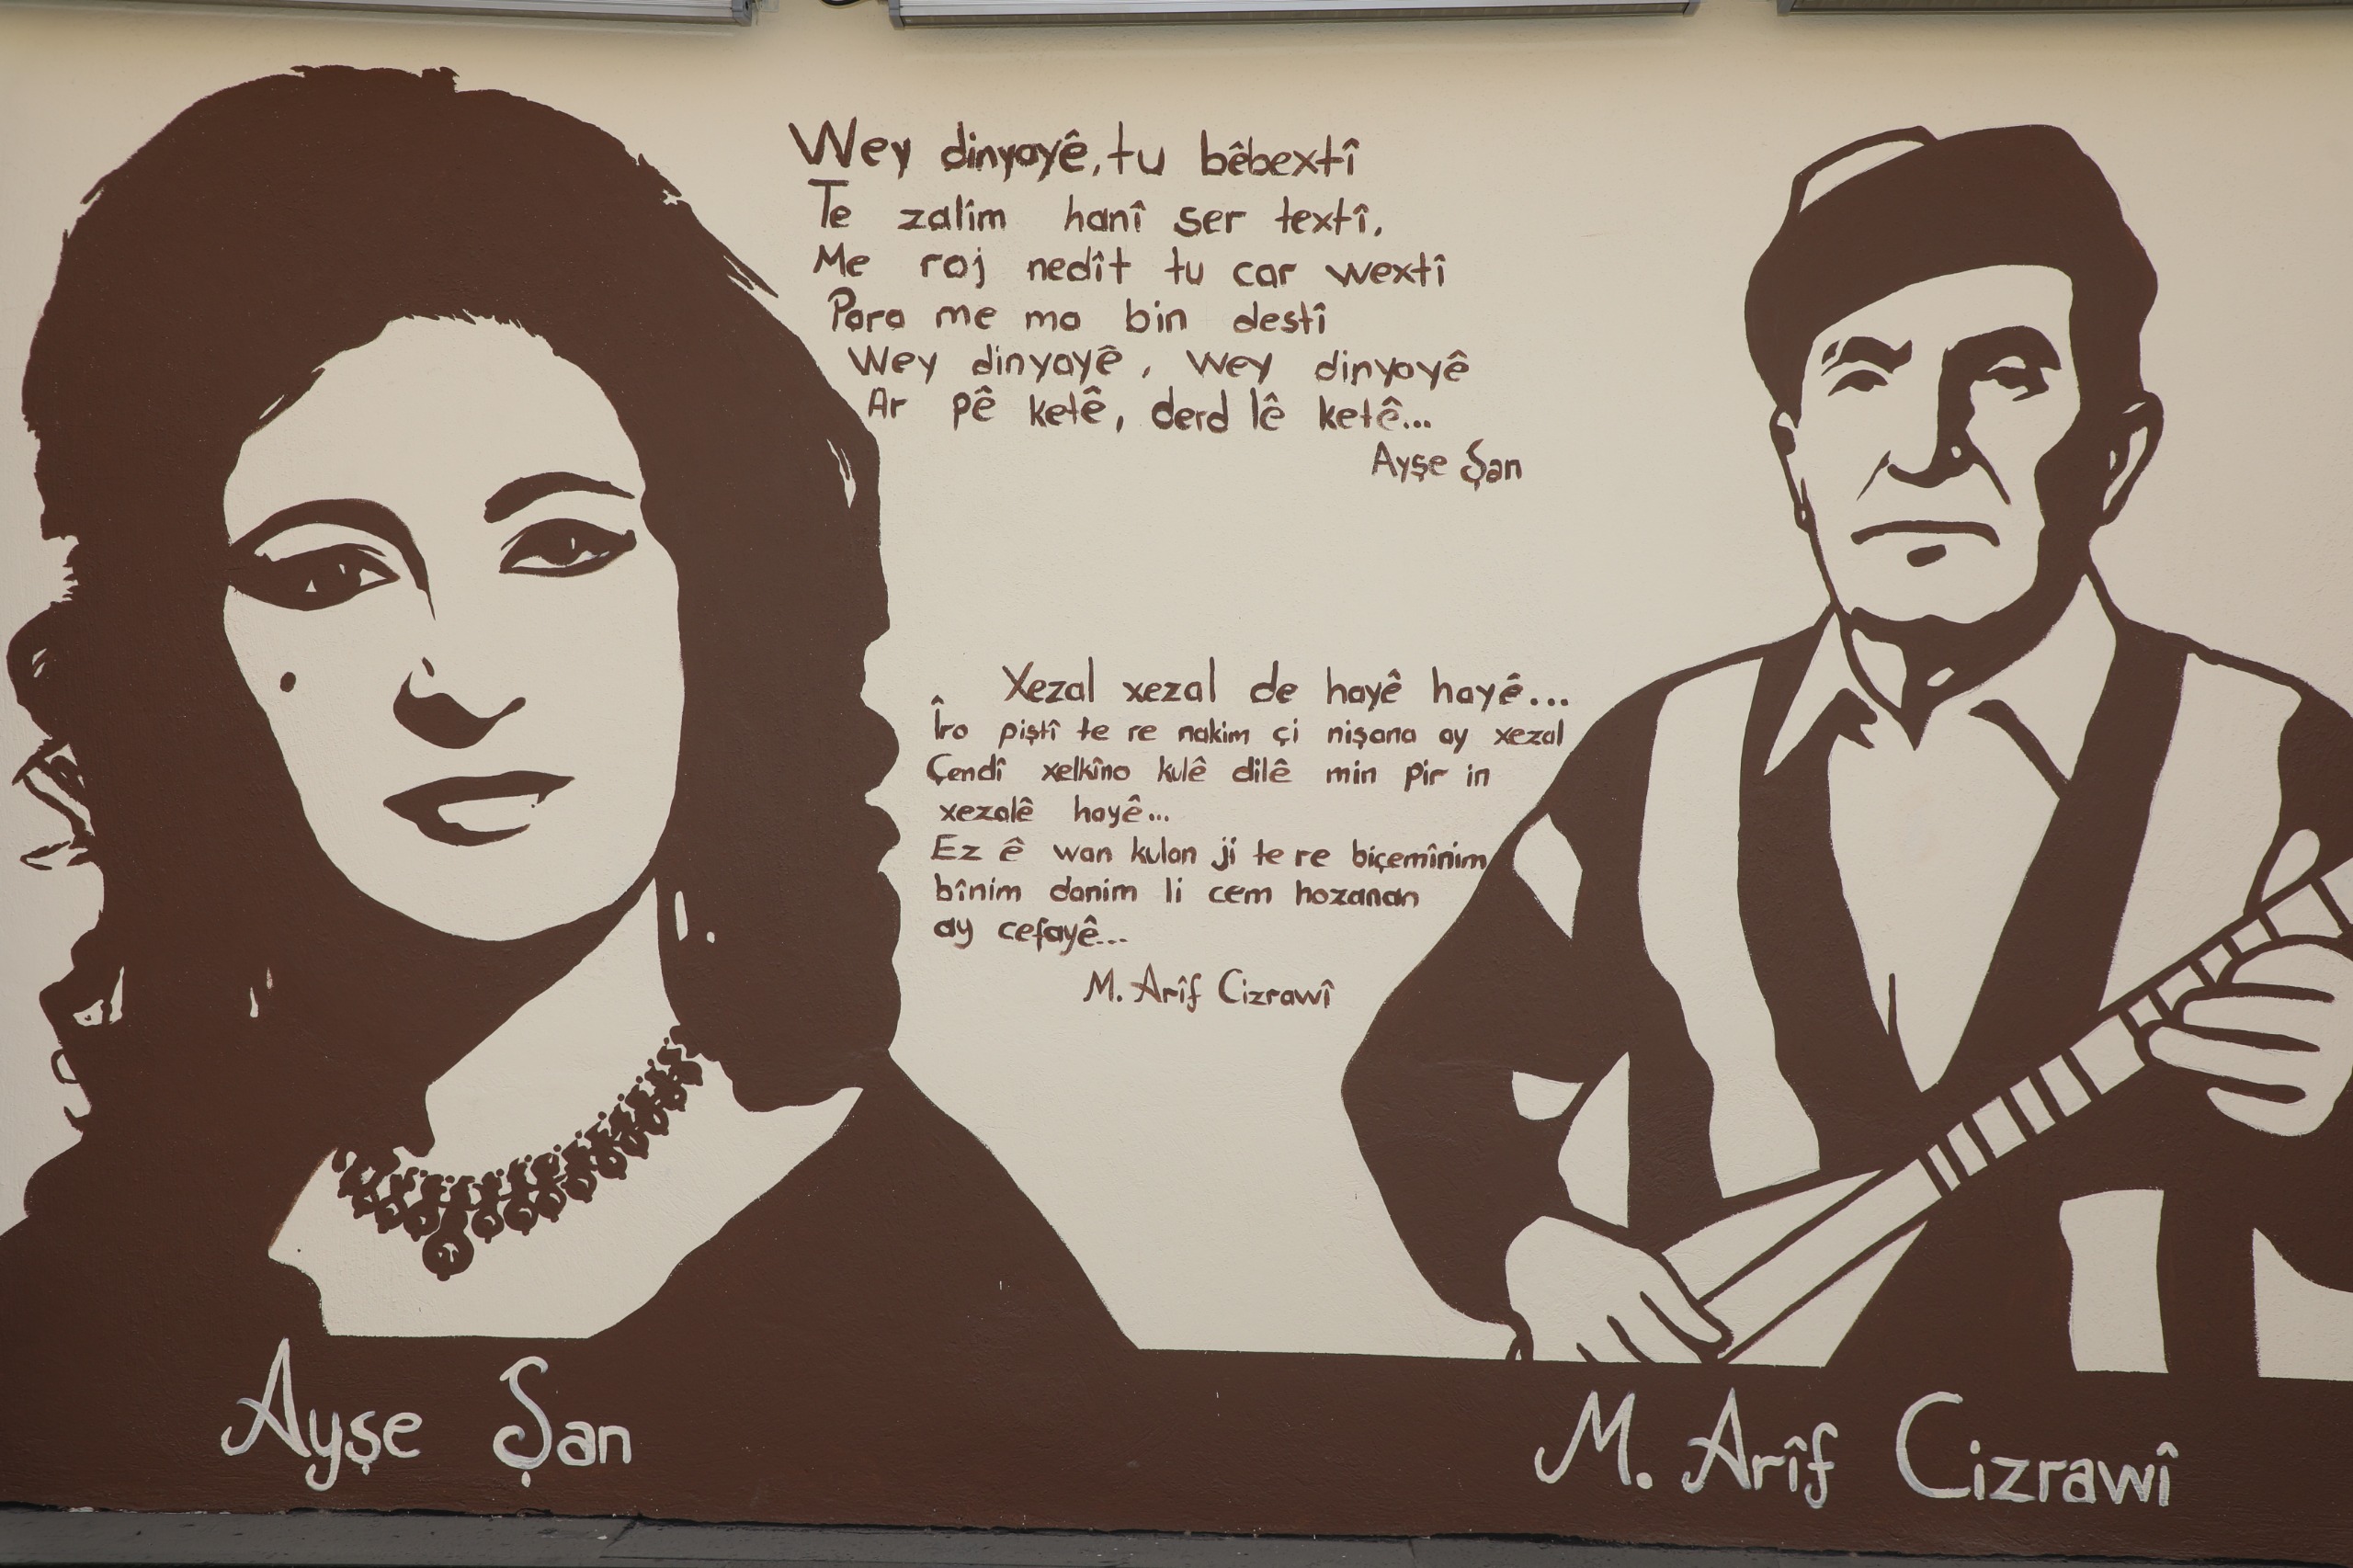 Wey dinyayê, tu bêbextî
Te zalîm hanî ser textî,
Me roj nedît tu car wextî
Para me ma bin destî
Wey dinyayê, wey dinyayê
Ar pê ketê, derd lê ketê...
Ayşe Şan
Xezal xezal de hayê hayê...
Îro piştî te re nakim çi nişana ay xezal
Çendî xelkîno kulê dilê min pir in
xezalê hayê...
Ez ê wan kulan ji te re biçemînim
bînim danim li cem hozanan
ay cefayê...
M. Arîf Cizrawî
Ayşe Şan
M. Arîf Cizrawî